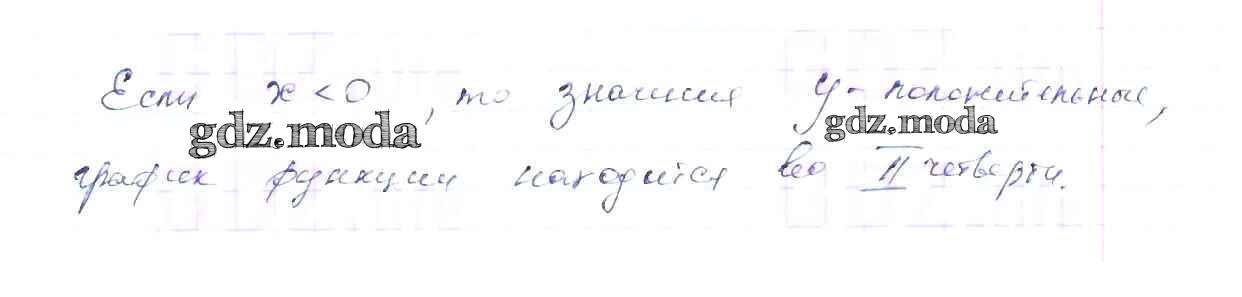 Если x < 0, то значения y - положительные,
gdz.moda gdz.moda
график функции находится во II четверти.